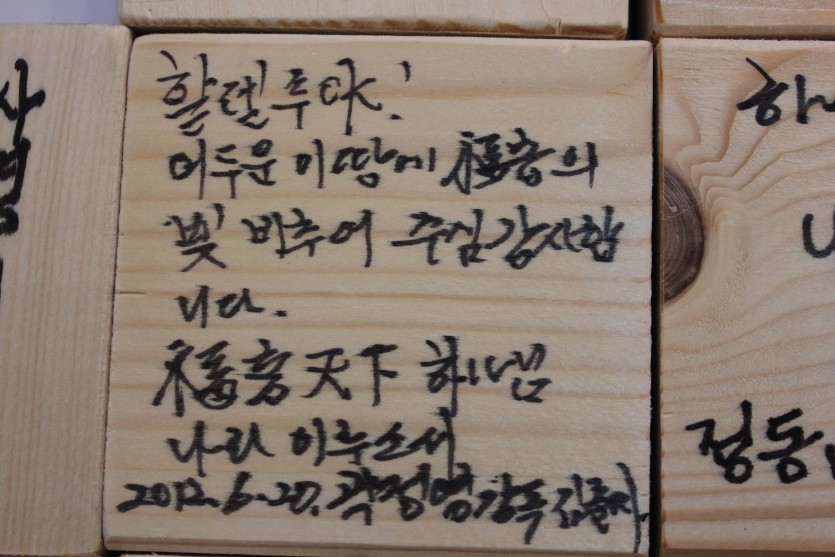 할렐루야!
어두운 이땅에 福음의
빛 비추어 주심 감사합
니다.
福音天下 하나님
나라 이루소서
2012. 6. 20. 곽정영 감독
하
정동